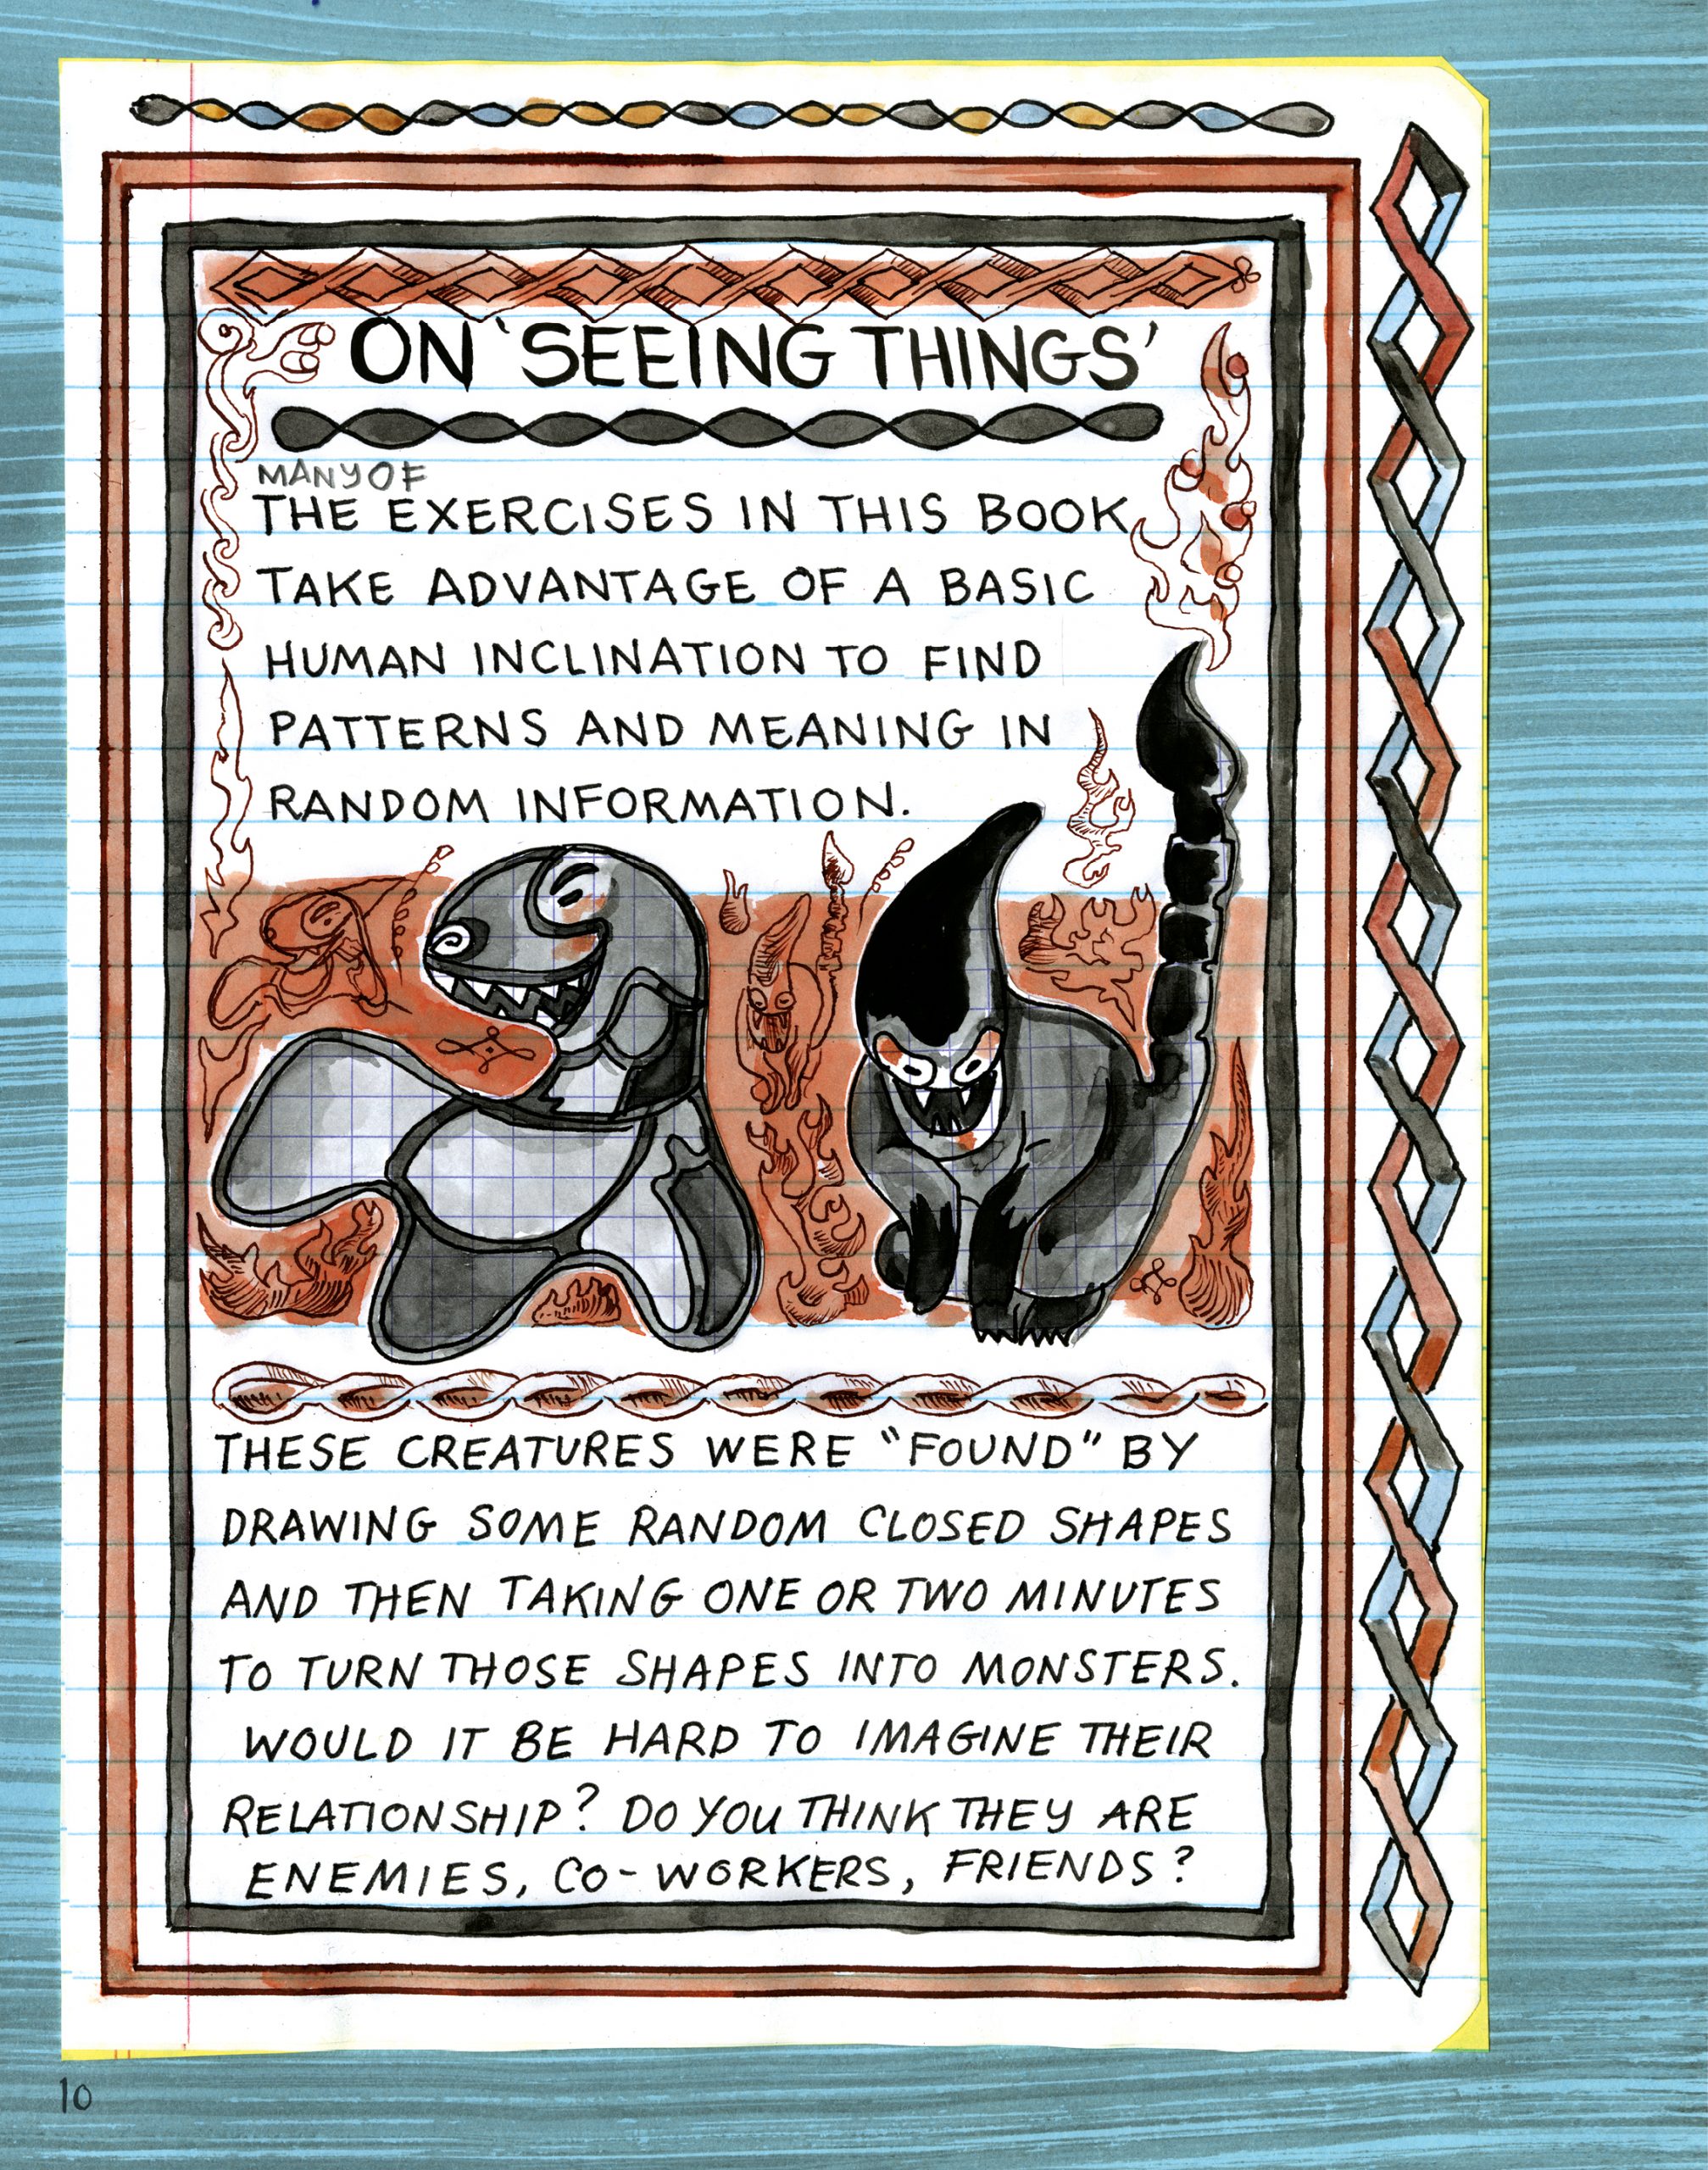 ON 'SEEING THINGS'
MANY OF
THE EXERCISES IN THIS BOOK
TAKE ADVANTAGE OF A BASIC
HUMAN INCLINATION TO FIND
PATTERNS AND MEANING IN
RANDOM INFORMATION.
THESE CREATURES WERE "FOUND" BY
DRAWING SOME RANDOM CLOSED SHAPES
AND THEN TAKING ONE OR TWO MINUTES
TO TURN THOSE SHAPES INTO MONSTERS.
WOULD IT BE HARD TO IMAGINE THEIR
RELATIONSHIP? DO YOU THINK THEY ARE
ENEMIES, CO-WORKERS, FRIENDS?
10